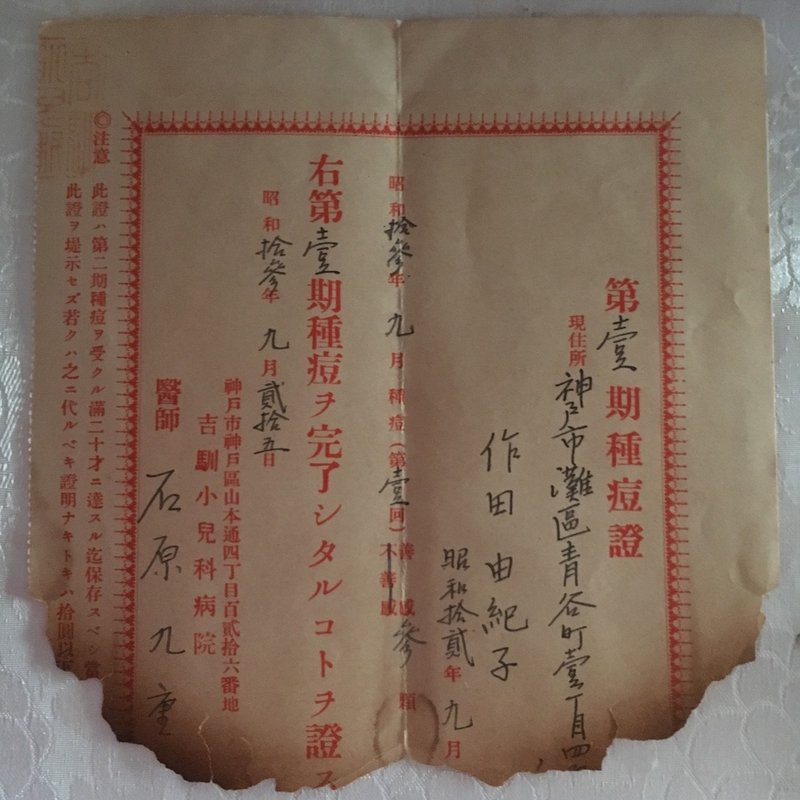 第壹期種痘證
現住所 神戸市灘區青谷町壹丁目四
作田由紀子
昭和拾貳年九月
昭和拾參年九月種痘(第壹回)善感參顆
不善感
右第壹期種痘ヲ完了シタルコトヲ證ス
昭和拾參年九月貳拾五日
神戸市神戸區山本通四丁目百貳拾六番地
吉馴小兒科病院
醫師 石原九重
◎注意 此證ハ第二期種痘ヲ受クル滿二十才ニ達スル迄保存スベシ當
此證ヲ堤示セズ若クハ之ニ代ルベキ證明ナキトキハ拾圓以